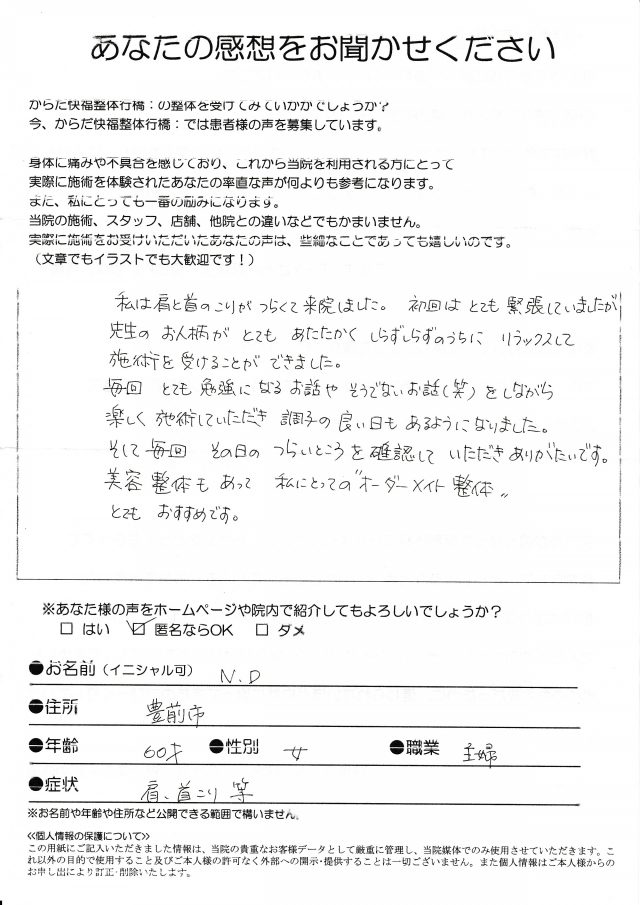 あなたの感想をお聞かせください
からだ快福整体行橋：の整体を受けてみていかがでしょうか？
今、からだ快福整体行橋：では患者様の声を募集しています。
身体に痛みや不具合を感じており、これから当院を利用される方にとって
実際に施術を体験されたあなたの率直な声が何よりも参考になります。
また、私にとっても一番の励みになります。
当院の施術、スタッフ、店舗、他院との違いなどでもかまいません。
実際に施術をお受けいただいたあなたの声は、些細なことであっても嬉しいのです。
（文章でもイラストでも大歓迎です！）
私は肩と首のこりがつらくて来院しました。 初回はとても緊張していましたが
先生のお人柄がとてもあたたかくしらずしらずのうちにリラックスして
施術を受けることができました。
毎回とても勉強になるお話やそうでないお話（笑）をしながら
楽しく施術していただき調子の良い日もあるようになりました。
そして毎回その日のつらいところを確認していただきありがたいです。
美容整体もあって私にとっての"オーダーメイト整体"
とてもおすすめです。
※あなた様の声をホームページや院内で紹介してもよろしいでしょうか？
□ はい ☑ 匿名ならOK □ ダメ
●お名前（イニシャル可） N.D
●住所 豊前市
●年齢 60才 ●性別 女 ●職業 主婦
●症状 肩、首こり 等
※お名前や年齢や住所など公開できる範囲で構いません。
≪個人情報の保護について≫
この用紙にご記入いただきました情報は、当院の貴重なお客様データとして厳重に管理し、当院媒体でのみ使用させていただきます。こ
れ以外の目的で使用すること及びご本人様の許可なく外部への開示・提供することは一切ございません。また個人情報はご本人様からの
お申し出により訂正・削除いたします。